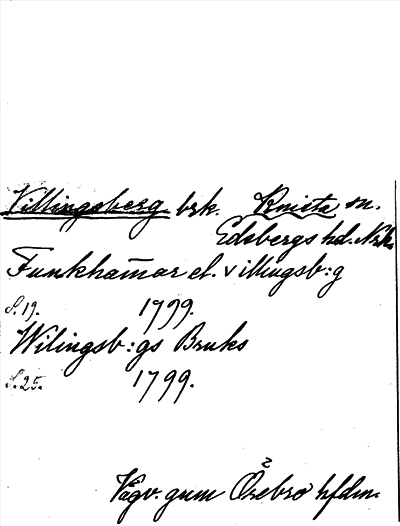 Villingsberg brk. Knista sn.
Edsbergs hd. Nrk.
Funkham̄ar el. villingsb:g
S. 19. 1799.
Wilingsb:gs Bruks
S. 25. 1799.
Vägv. gnm Örebro hfdm.